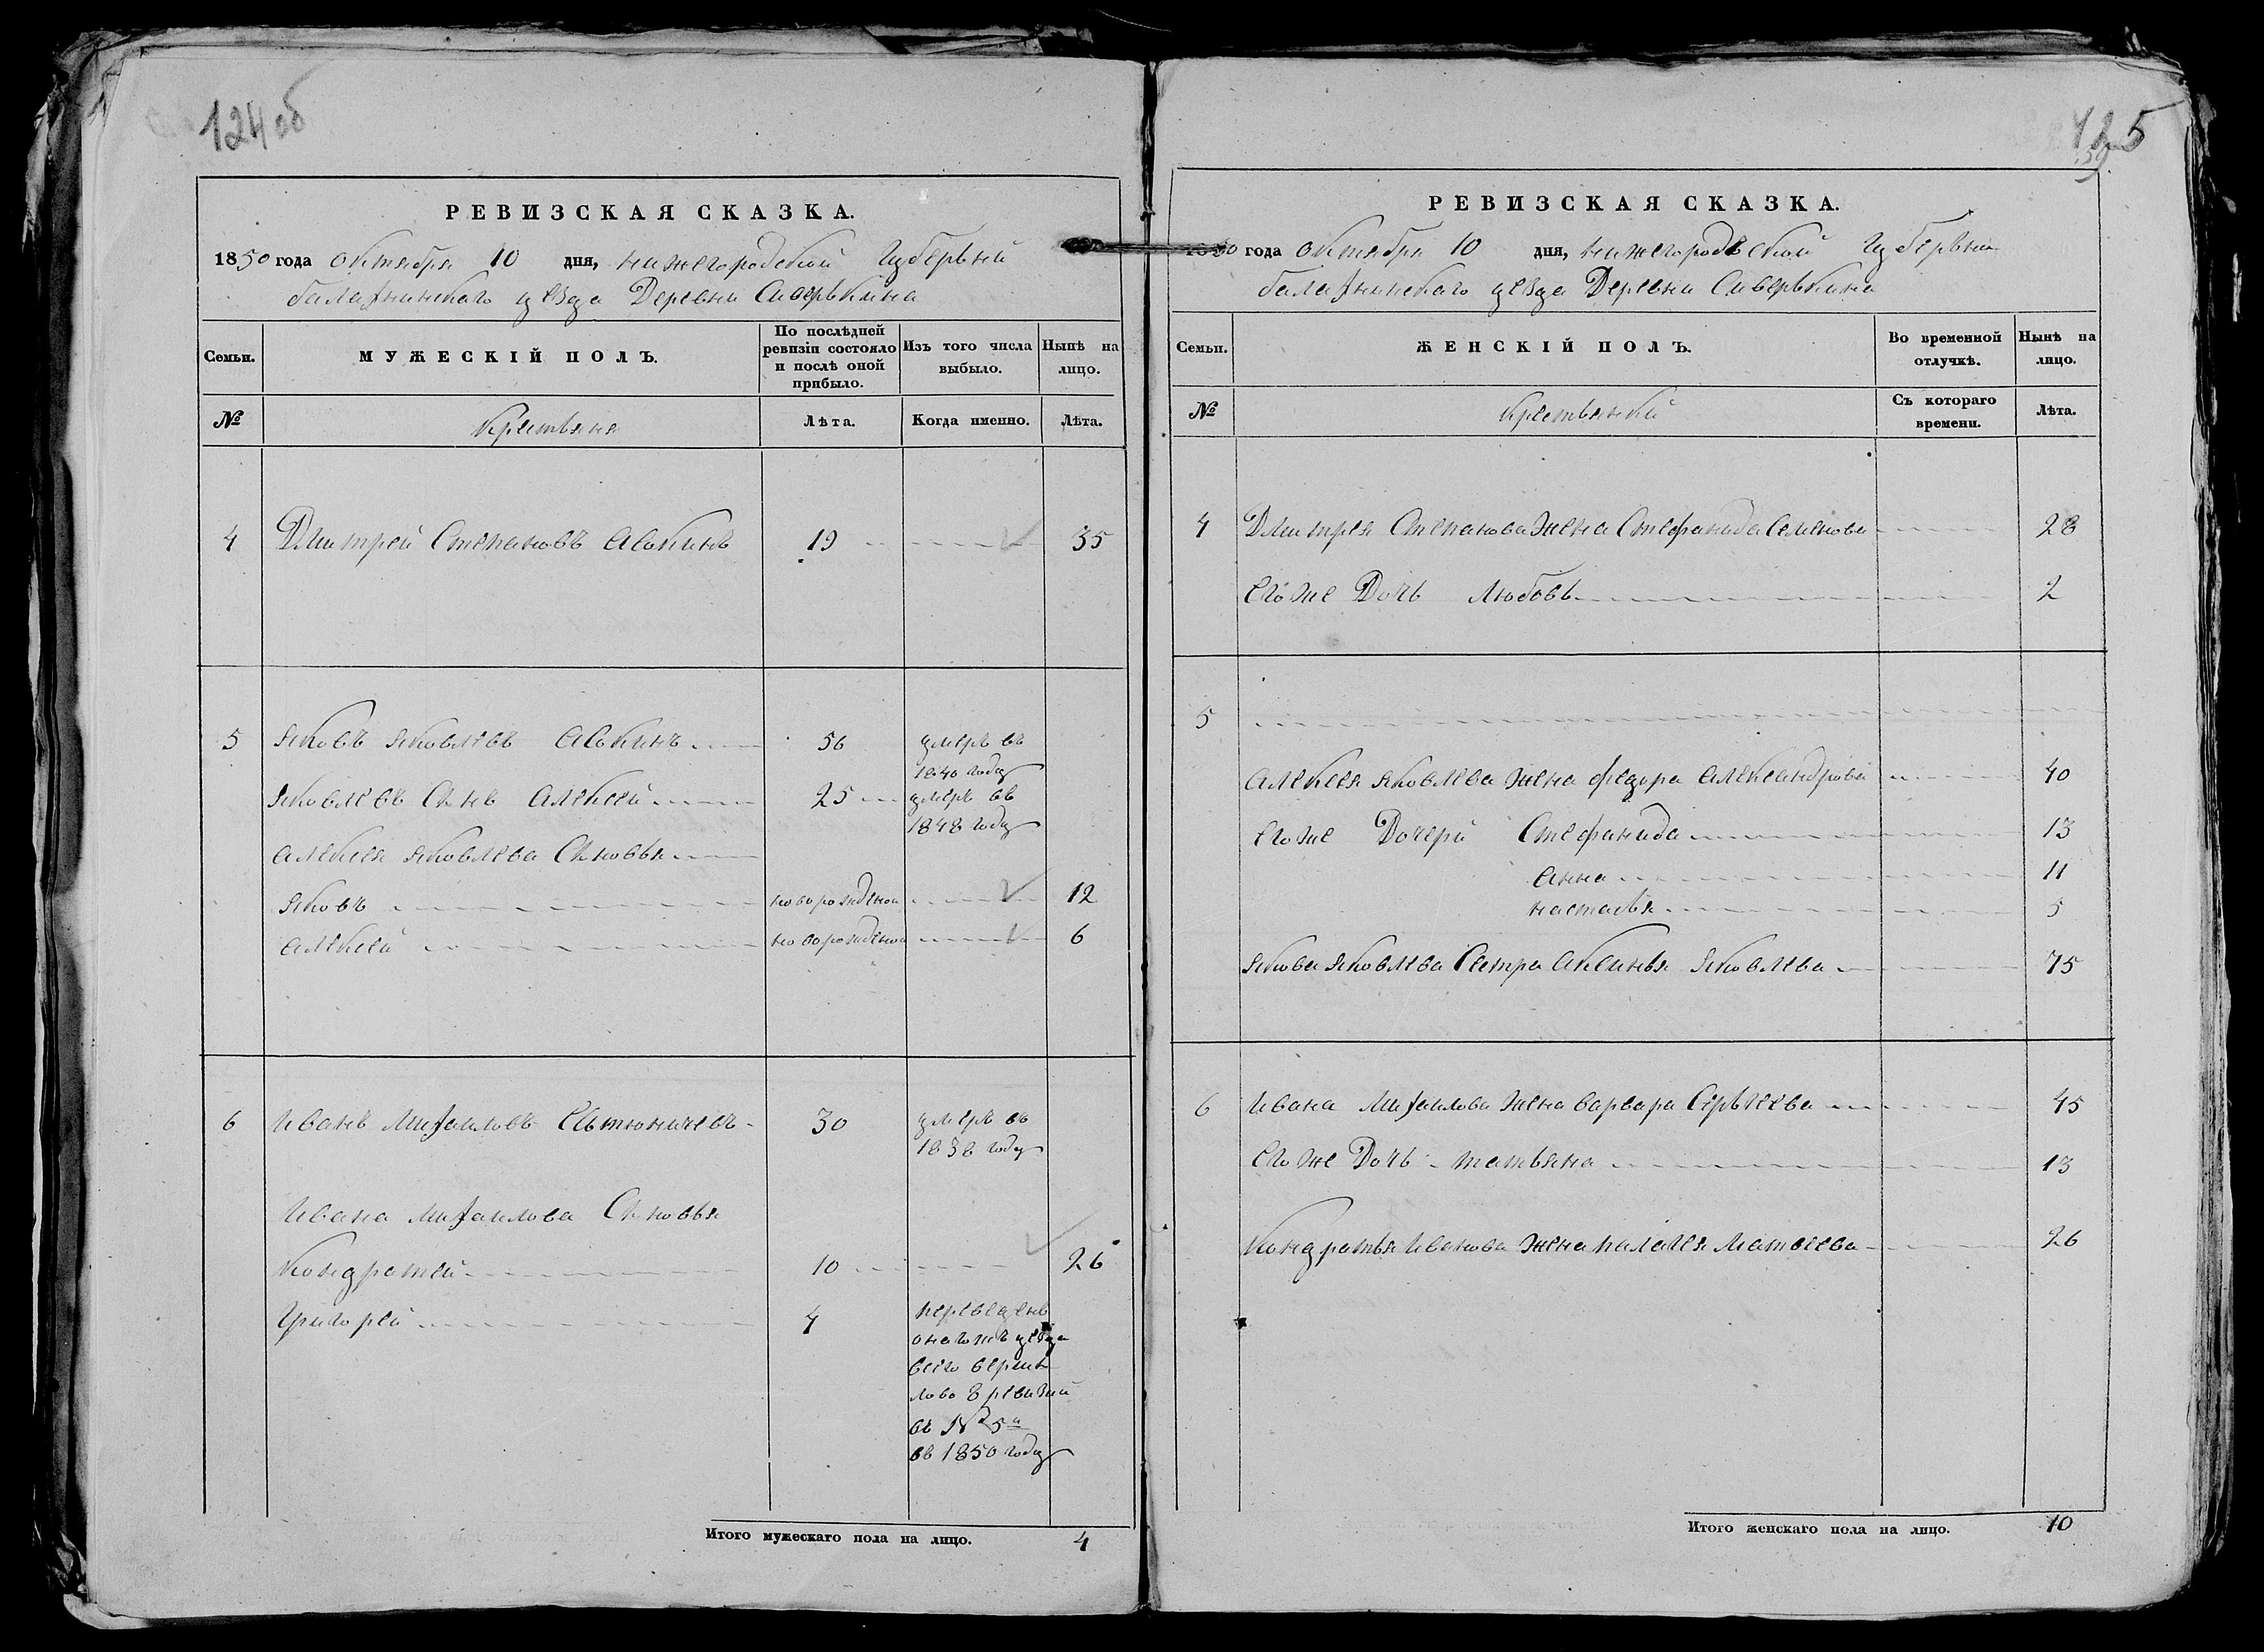 124 об
РЕВИЗСКАЯ СКАЗКА.
1850 года октября 10 дня, нижегородской Губерьнии
балахнинскаго уезда Деревни Сиверькина
Семьи.
МУЖЕСКІЙ ПОЛЪ.
По послѣдней ревизіи состояло и послѣ оной прибыло.
Изъ того числа выбыло.
Нынѣ на лицо.
№
Крестьяня
Лѣта.
Когда именно.
Лѣта.
4 Дмитрей Степановъ Асокинъ 19 35
5 Яковъ Яковлевъ Асокинъ 56 умеръ въ
1840 году
Яковлевъ Сынъ Алексей 25 умеръ въ
1848 году
Алексея Яковлева Сыновья
Яковъ новорожденой 12
Алексей новорожденой 6
6 Иванъ Михаиловъ 30 умеръ въ
1838 году
Ивана Михаилова Сыновья
Кондратей 10 26
Григорей 4 переведенъ
онагожъ уезда
всело
лово 8 ревизии
въ № 5й
въ 1850 году
Итого мужескаго пола на лицо. 4
125
РЕВИЗСКАЯ СКАЗКА.
1850 года октября 10 дня, нижегородской Губерьнии
балахнинскаго уезда Деревни Сиверькина
Семьи.
ЖЕНСКІЙ ПОЛЪ.
Во временной отлучкѣ.
Нынѣ на лицо.
№
Крестьянки
Съ котораго времени.
Лѣта.
4 Дмитрея Степанова Жена Стефанида Семенова 28
Егоже Дочь Любовь 2
5
Алексея Яковлева Жена федора Александрова 40
Егоже Дочери Стефанида 13
Анна 11
настасья 5
Якова Яковлева Сестра Аксинья Яковлева 75
6 Ивана Михаилова Жена варвара Серьгеева 45
Егоже Дочь татьяна 13
Кондратья Иванова Жена палагея Матвеева 26
Итого женскаго пола на лицо. 10